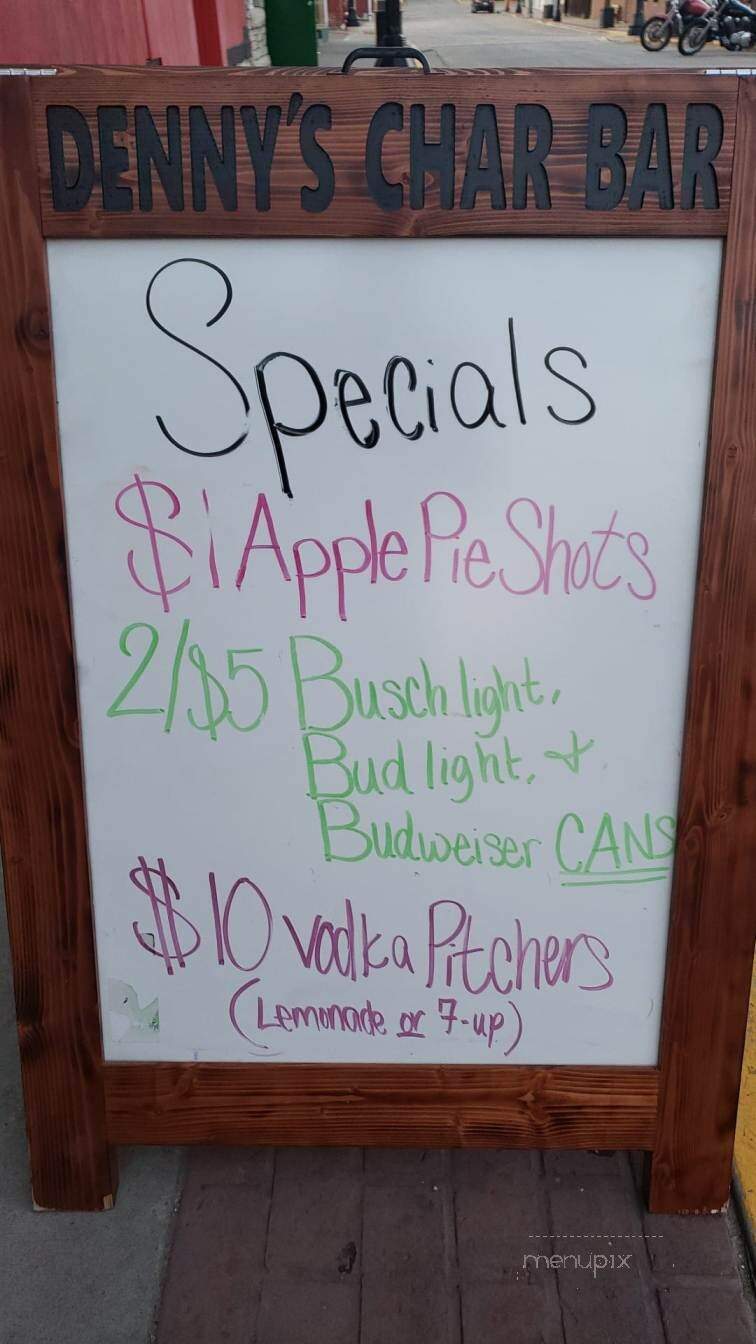 DENNY'S CHAR BAR
Specials
$1 Apple Pie Shots
2/$5 Busch light,
Bud light, &
Budweiser CANS
$10 vodka Pitchers
(Lemonade or 7-up)
menupix